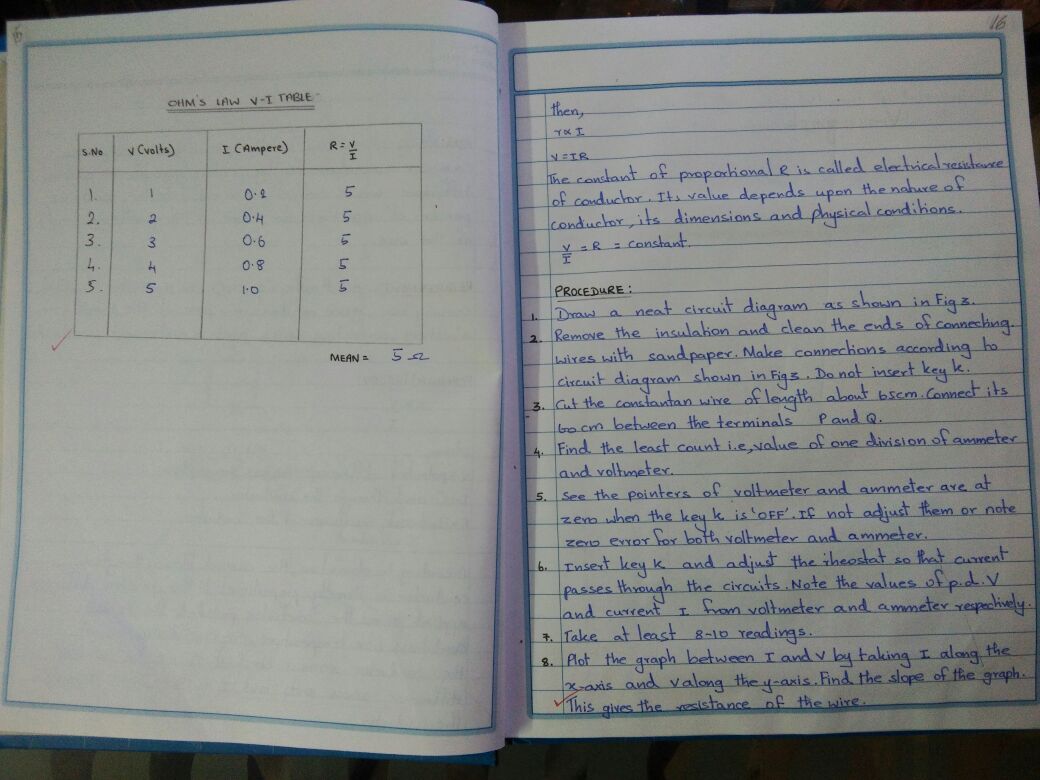 15
OHM'S LAW V-I TABLE
S.No V (Volts) I (Ampere) R = V/I
1. 1 0.2 5
2. 2 0.4 5
3. 3 0.6 5
4. 4 0.8 5
5. 5 1.0 5
MEAN = 5 Ω
16
then,
V ∝ I
V = IR
The constant of proportional R is called electrical resistance
of conductor. Its value depends upon the nature of
conductor, its dimensions and physical conditions.
V/I = R = constant.
PROCEDURE:
1. Draw a neat circuit diagram as shown in Fig 3.
2. Remove the insulation and clean the ends of connecting
wires with sandpaper. Make connections according to
circuit diagram shown in Fig 3. Do not insert key k.
3. Cut the constantan wire of length about 65cm. Connect its
60cm between the terminals P and Q.
4. Find the least count i.e, value of one division of ammeter
and voltmeter.
5. See the pointers of voltmeter and ammeter are at
zero when the key k is 'OFF'. If not adjust them or note
zero error for both voltmeter and ammeter.
6. Insert key k and adjust the rheostat so that current
passes through the circuits. Note the values of p.d. V
and current I from voltmeter and ammeter respectively.
7. Take at least 8-10 readings.
8. Plot the graph between I and V by taking I along the
x-axis and V along the y-axis. Find the slope of the graph.
This gives the resistance of the wire.